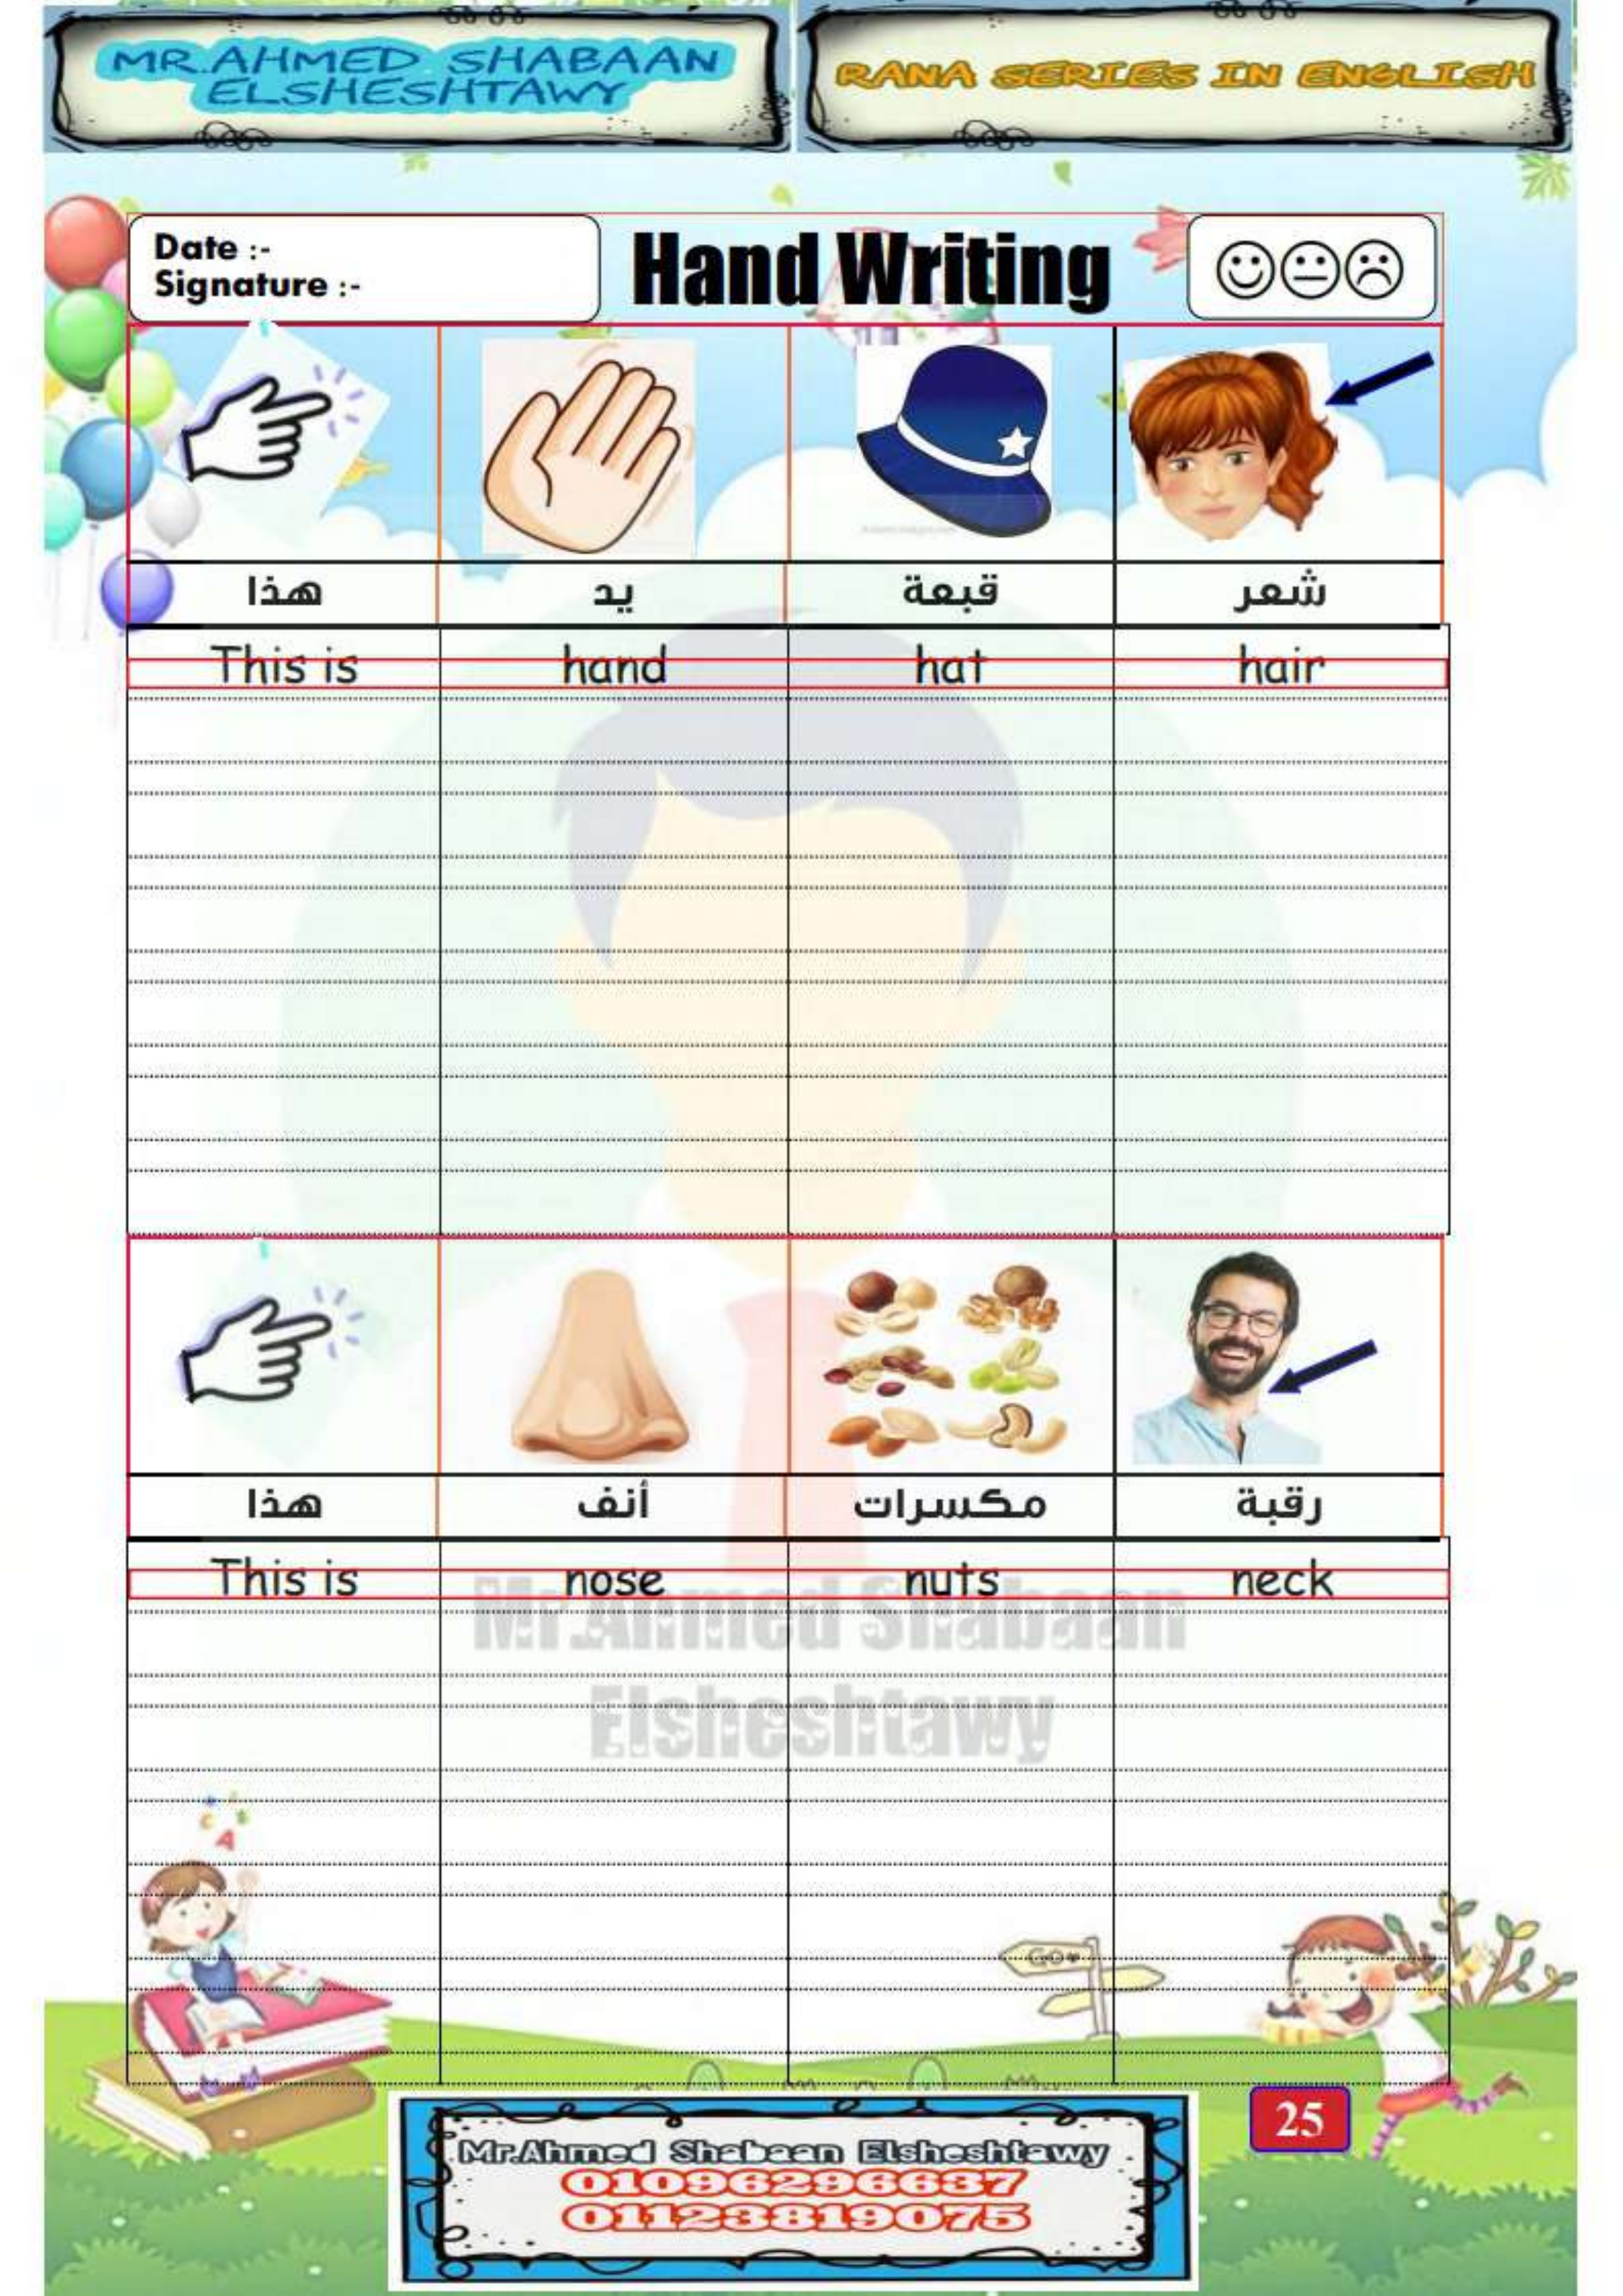 MR.AHMED SHABAAN
ELSHESHTAWY
RANA SERIES IN ENGLISH
Date :-
Signature :-
Hand Writing
هذا يد قبعة شعر
This is hand hat hair
هذا أنف مكسرات رقبة
This is nose nuts neck
Mr.Ahmed Shabaan
Elsheshtawy
A
Go
25
Mr.Ahmed Shabaan Elsheshtawy
01096296637
01123819075